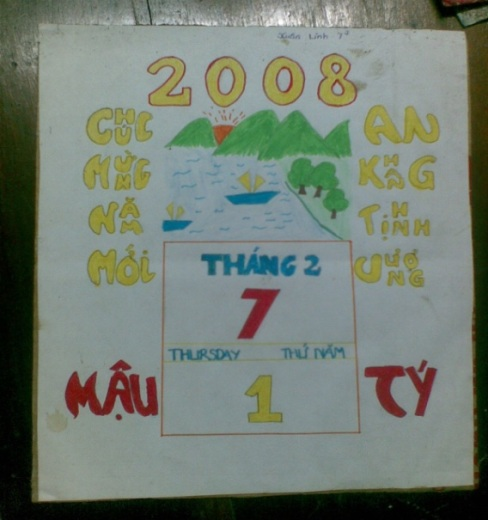 2008
CHÚC
MỪNG
NĂM
MỚI
AN
KHANG
THỊNH
VƯỢNG
THÁNG 2
7
THURSDAY THỨ NĂM
1
MẬU TÝ